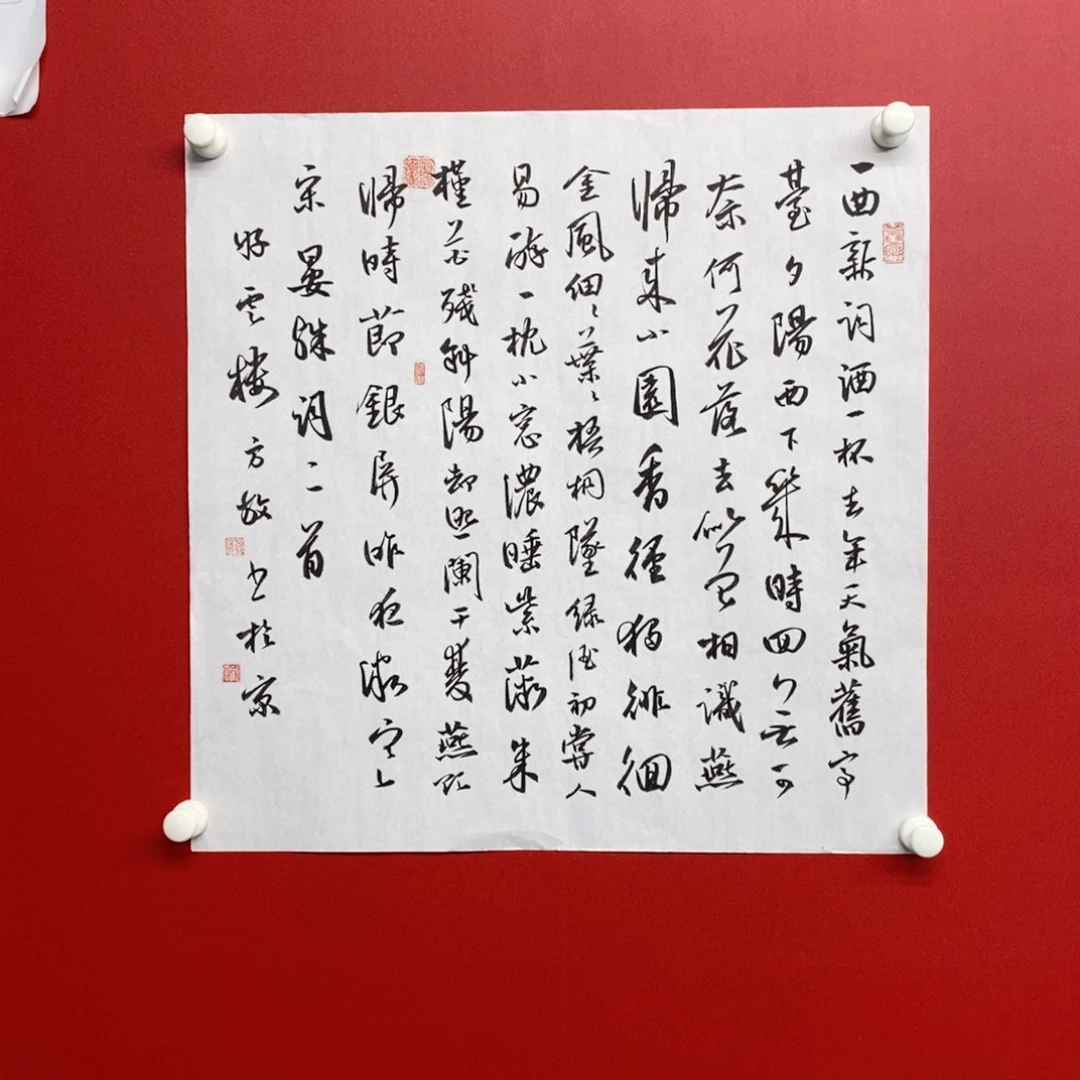 一曲新詞酒一杯去年天氣舊亭
臺夕陽西下幾時回無可
奈何花落去似曾相識燕
歸來小園香徑獨徘徊
金風細〻葉〻梧桐墜綠酒初嘗人
易醉一枕小窗濃睡紫薇朱
槿花殘斜陽却照闌干雙燕欲
歸時節銀屏昨夜微寒
宋晏殊詞二首
好雲樓方書於京